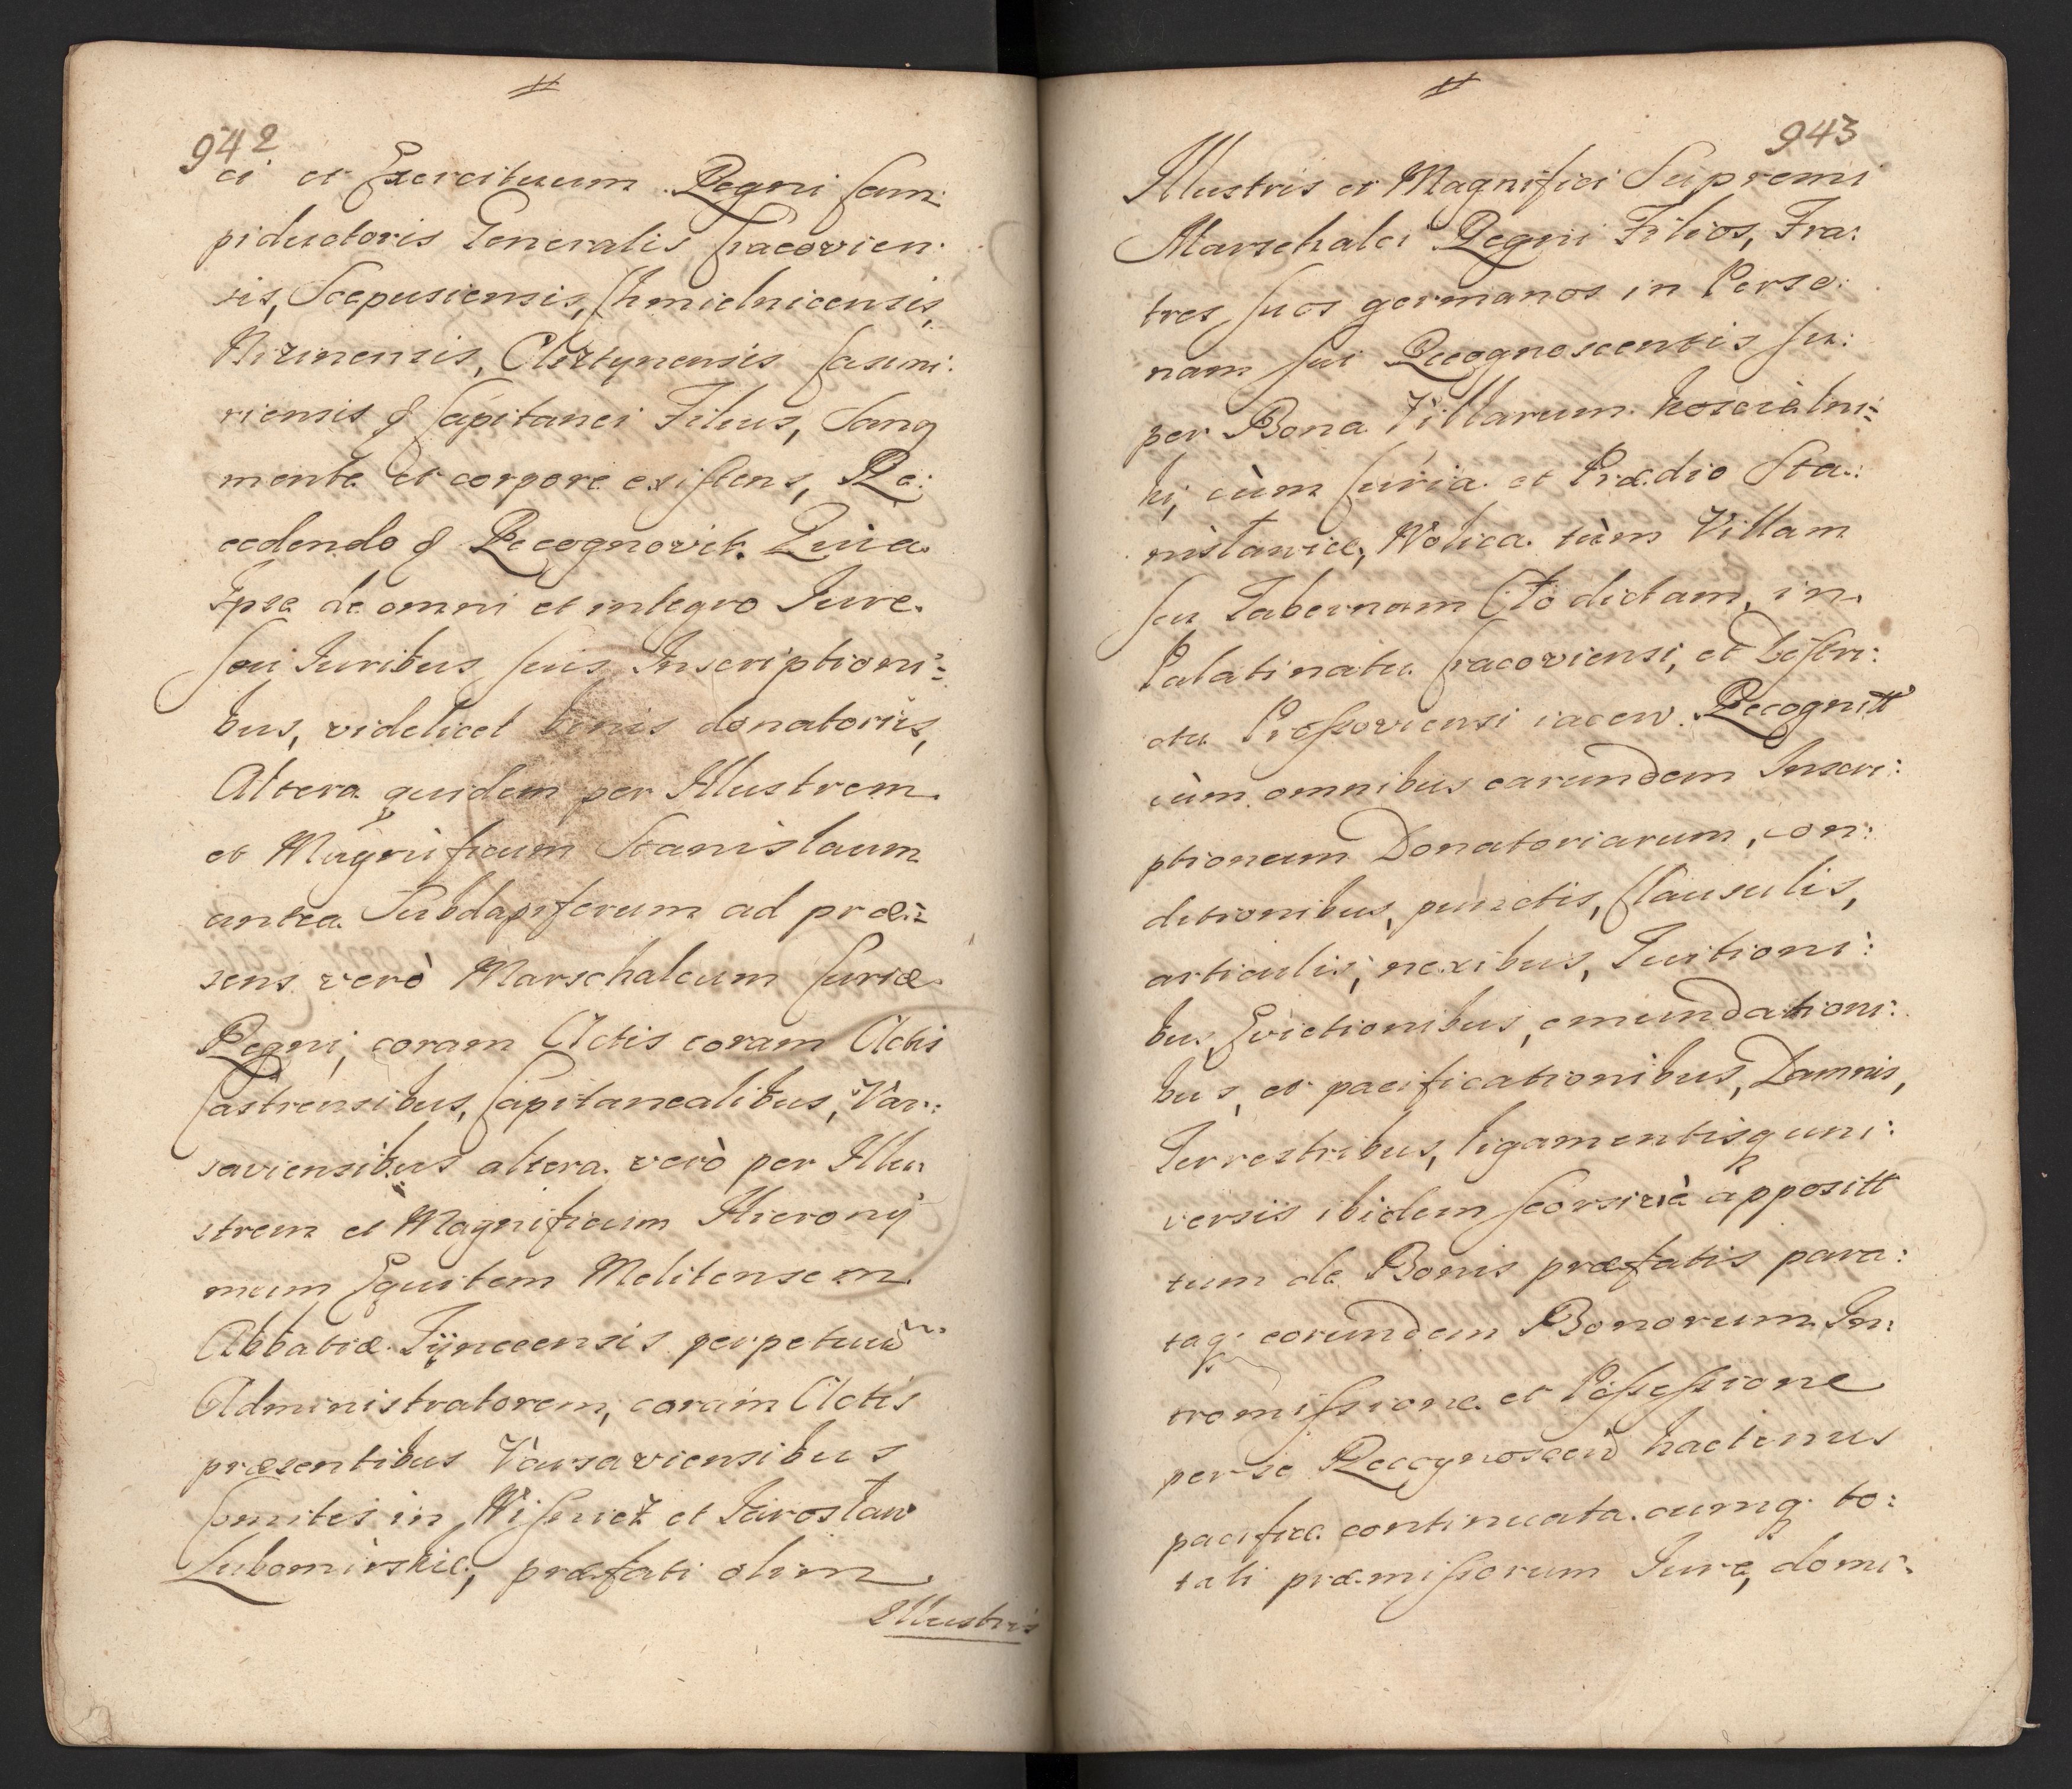 942
ci et Exercituum Regni Cam:
piductoris Generalis Cracovien:
sis, Scepusiensis, Chmielnicensis,
Nizinensis, Olsztynensis Casimi:
riensis & Capitanei Filius, Sanq
mente et corpore existens, Re:
cedendo & Recognovit. Quia
Ipse de omni et integro Jure
seu Juribus suis Inscriptioni:
bus, videlicet binis donatoriis,
Altera quidem per Illustrem
et Magnificum Stanislaum
antea Subdapiferum ad præ:
sens verò Marschalcum Curiæ
Regni, coram Actis coram Actis
Castrensibus, Capitanealibus, Var:
saviensibus altera verò per Illu
strem et Magnificum Hierony
mum Equitem Melitensem
Abbatiæ Tÿnecensis perpetuu
Administratorem, coram Actis
præsentibus Varsaviensibus
Comites in Wisnicz et Jarosław
Lubomirskie, præfati olim
Illustris
943
Illustris et Magnifici Supremi
Marschalci Regni Filios, Fra:
tres suos germanos in Perso:
nam sui Recognoscentis su:
per Bona Villarum Koscielni:
ki, cùm Curia et Prædio Sta:
nisławice, Wolica tùm Villam
seu Tabernam Cło dictam, in
Palatinatu Cracoviensi, et Distri:
ctu Proszoviensi iacen. Recognitt
cùm omnibus earundem Inscri:
ptionum Donatoriarum, con:
ditionibus, punctis, Clausulis,
articulis, nexibus, Tuitioni:
bus, Evictionibus, emundationi:
bus, et pacificationibus, Damnis,
Terrestribus, ligamentisq uni:
versis ibidem seorsivè appositt
tum de Bonis præfatis para:
taq: eorundem Bonorum In:
tromissione et Possessione
per se Recognoscen hactenus
pacifice continuata cumq: to:
tali præmissorum Jure, domi: